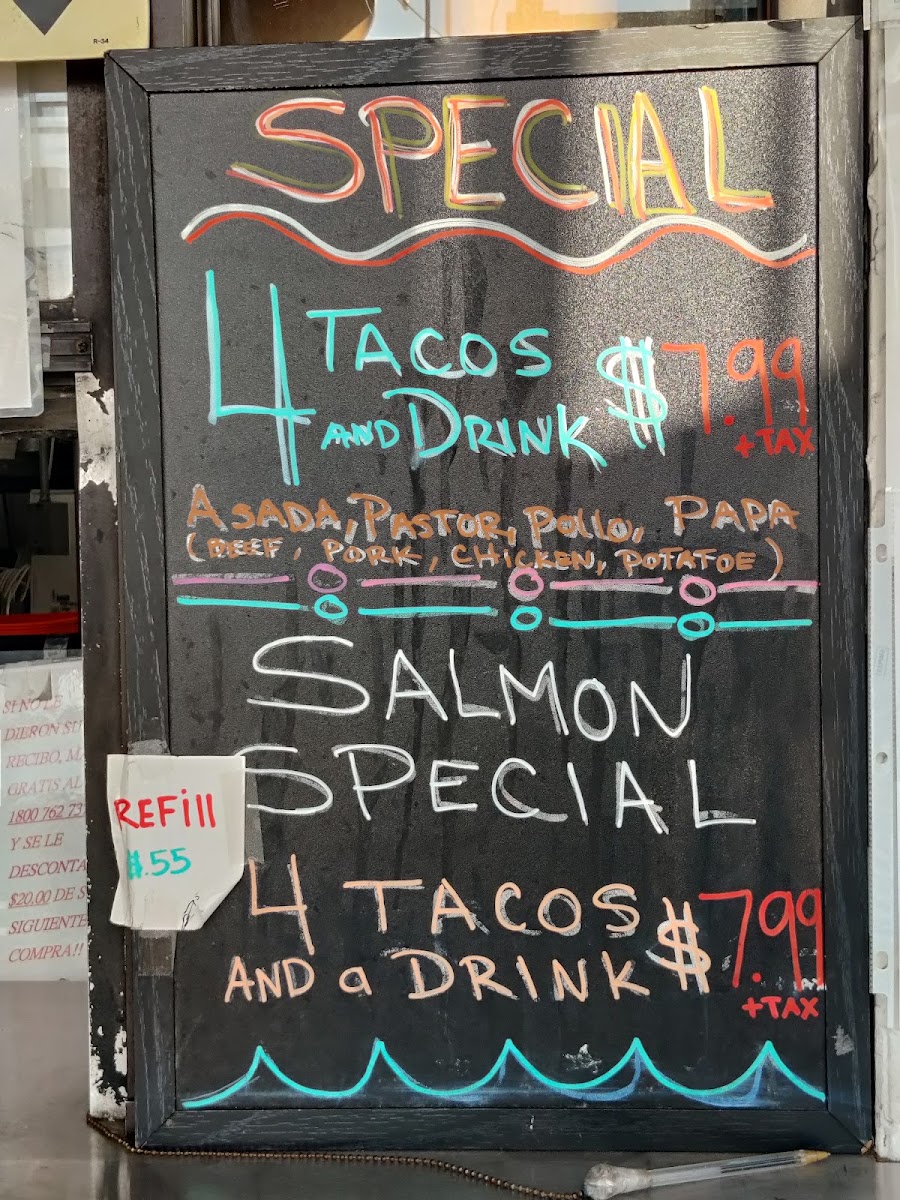 R-54
SPECIAL
4 TACOS
AND DRINK $7.99
+TAX
ASADA, PASTOR, POLLO, PAPA
(BEEF, PORK, CHICKEN, POTATOE)
SALMON
SPECIAL
4 TACOS
AND a DRINK $7.99
+TAX
REFill
$.55
SI NO LE
DIERON SU
RECIBO,
GRATIS AL
1800 762
Y SE LE
DESCONTA
$20.00 DE S
SIGUIENTE
COMPRA!!